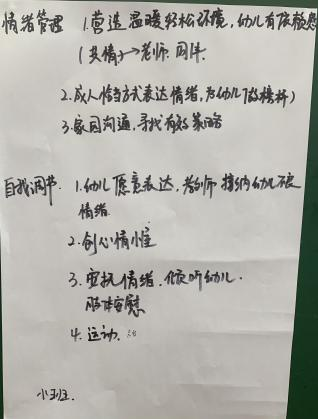 情绪管理 1.营造温暖轻松环境,幼儿有依赖感
(共情)→老师.同伴.
2.成人恰当方式表达情绪,为幼儿做榜样)
3.家园沟通,寻找有效策略
自我调节. 1.幼儿愿意表达,老师接纳幼儿不良
情绪.
2.创心情小屋
3.安抚情绪.倾听幼儿.
肢体安慰
4.运动.
小班.